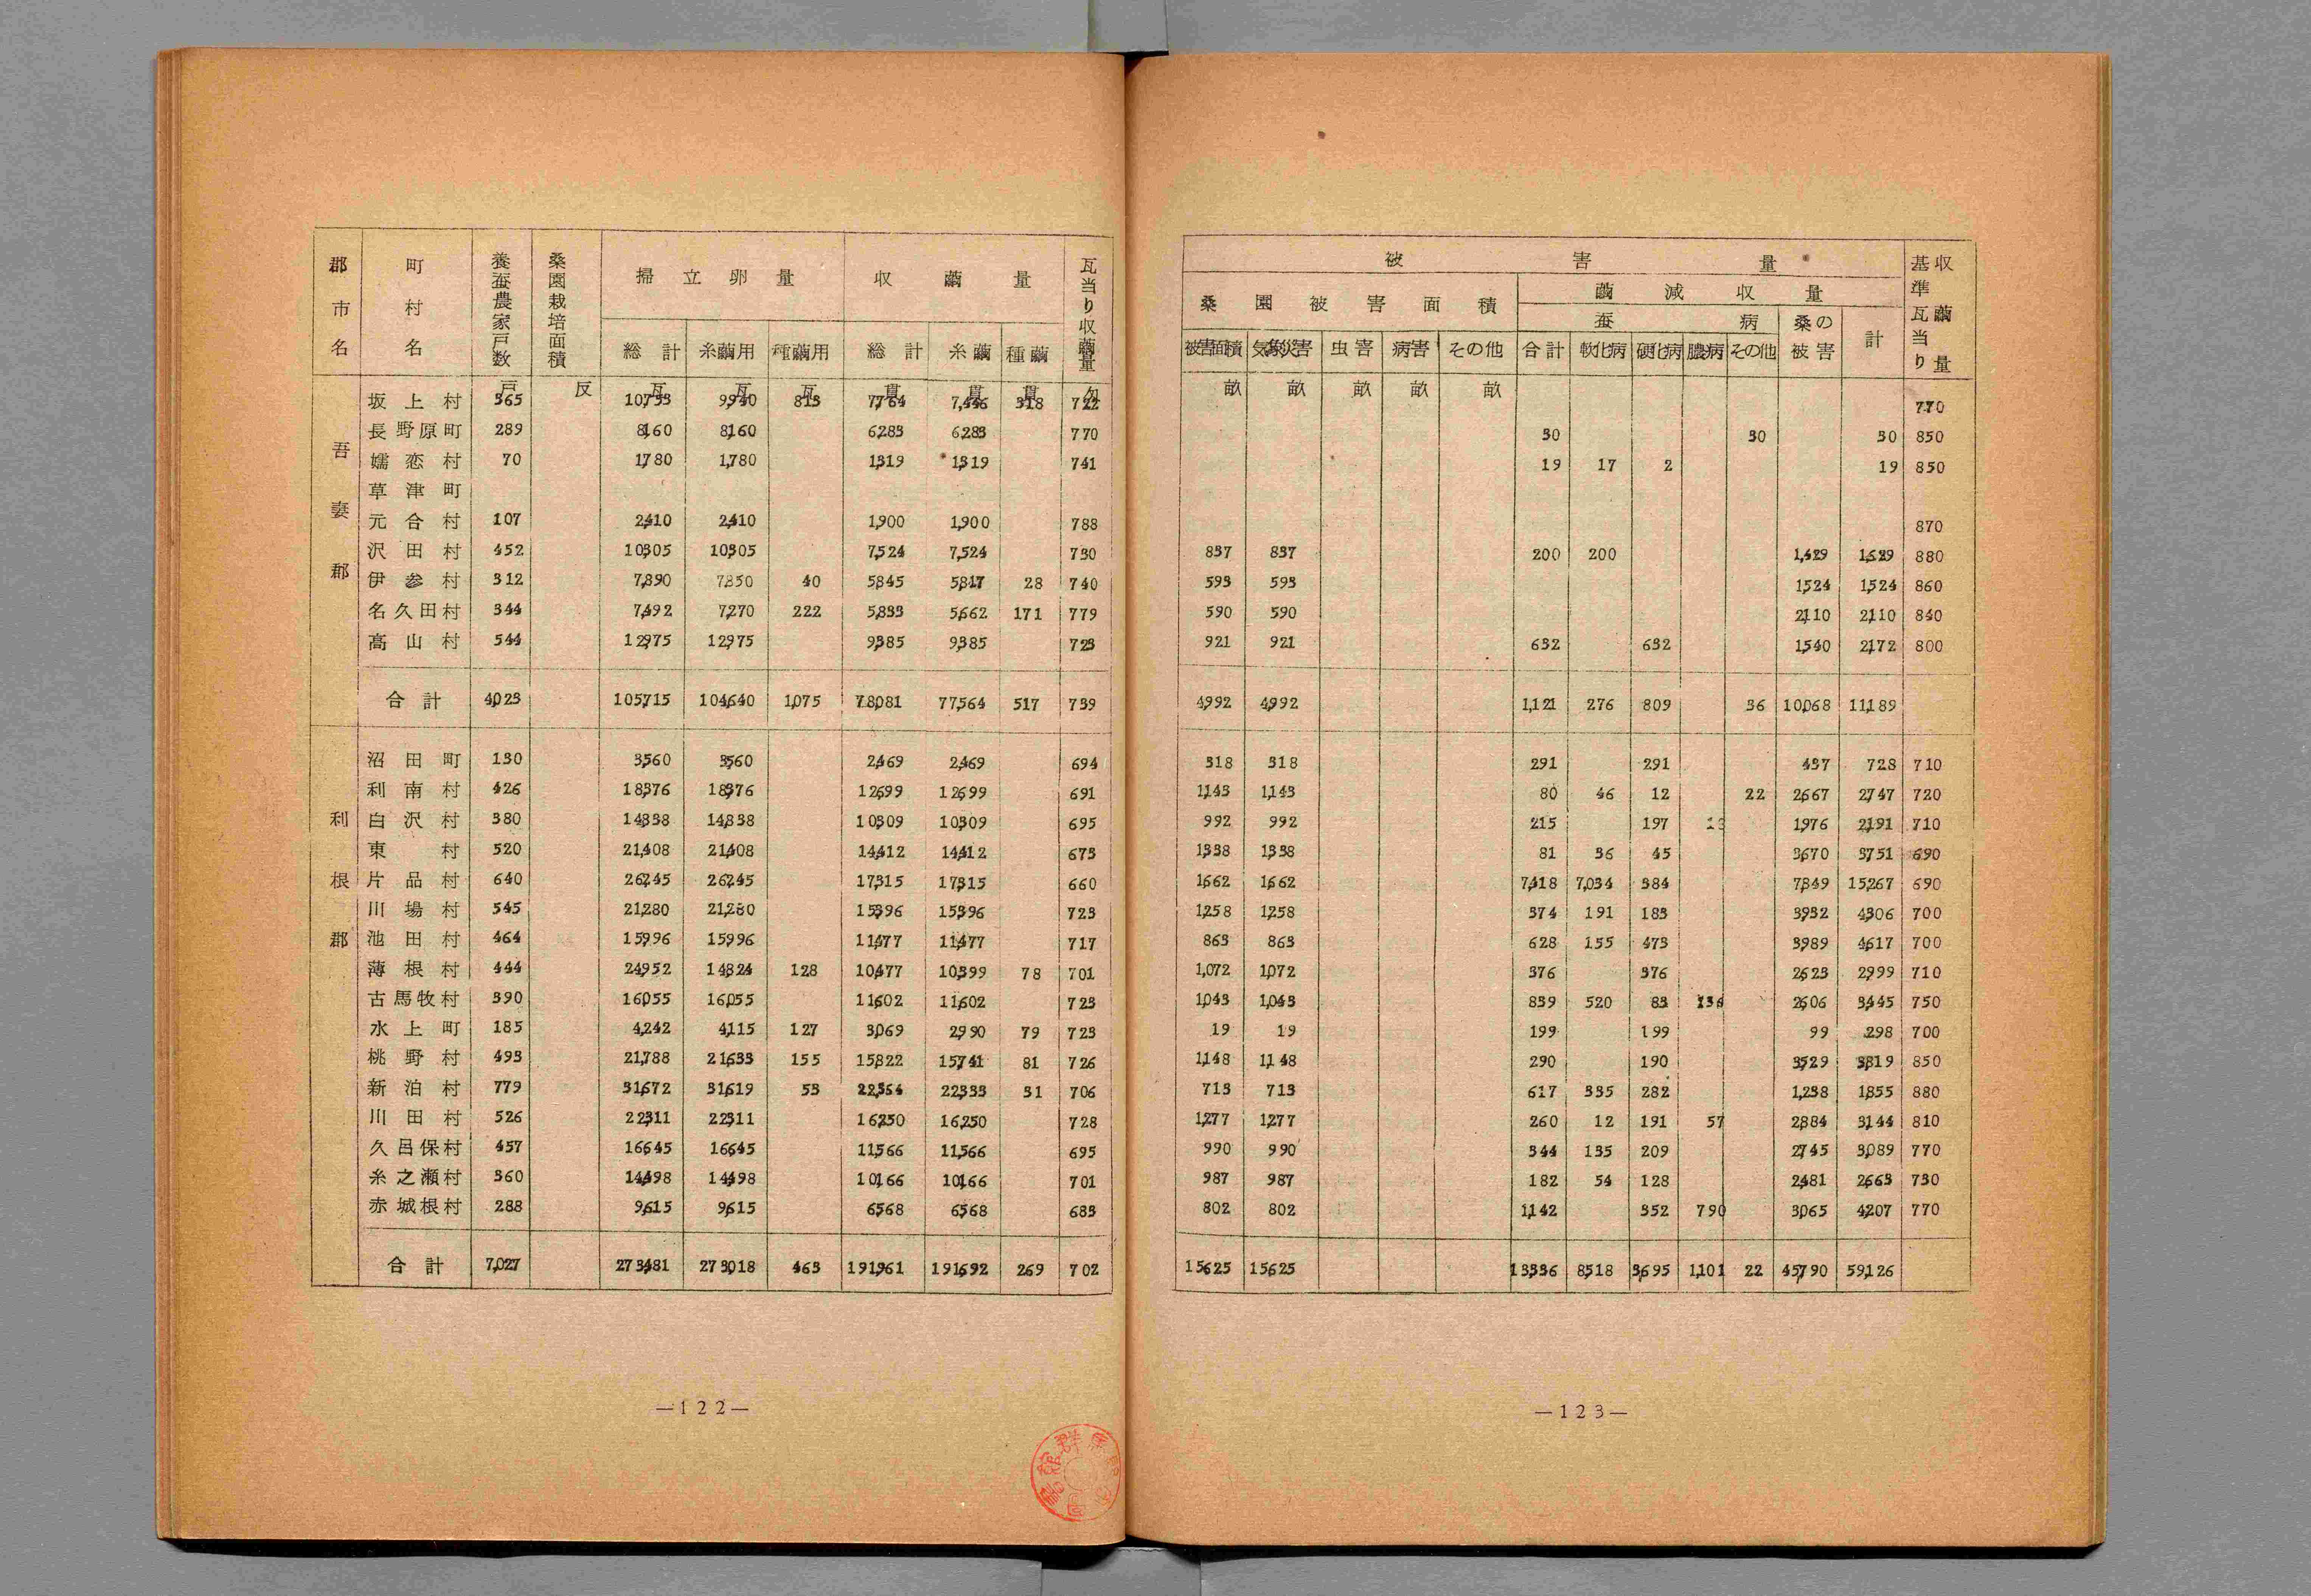 郡市名 町村名 養蚕農家戸数 桑園栽培面積 掃立卵量 収繭量 瓦当り収繭量
総計 糸繭用 種繭用 総計 糸繭 種繭
戸 反 瓦 瓦 瓦 貫 貫 貫 匁
吾妻郡
坂上村 365 10,753 9,940 813 7,764 7,446 318 722
長野原町 289 8,160 8,160 6,283 6,283 770
嬬恋村 70 1,780 1,780 1,319 1,319 741
草津町
元合村 107 2,410 2,410 1,900 1,900 788
沢田村 452 10,305 10,305 7,524 7,524 730
伊参村 312 7,890 7,850 40 5,845 5,817 28 740
名久田村 344 7,492 7,270 222 5,833 5,662 171 779
高山村 544 12,975 12,975 9,385 9,385 723
合計 4,023 105,715 104,640 1,075 78,081 77,564 517 739
利根郡
沼田町 130 3,560 3,560 2,469 2,469 694
利南村 426 18,376 18,376 12,699 12,699 691
白沢村 380 14,838 14,838 10,309 10,309 695
東村 520 21,408 21,408 14,412 14,412 673
片品村 640 26,245 26,245 17,315 17,315 660
川場村 545 21,280 21,280 15,396 15,396 723
池田村 464 15,996 15,996 11,477 11,477 717
薄根村 444 24,952 14,824 128 10,477 10,399 78 701
古馬牧村 390 16,055 16,055 11,602 11,602 723
水上町 185 4,242 4,115 127 3,069 2,990 79 723
桃野村 493 21,788 21,633 155 15,822 15,741 81 726
新泊村 779 31,672 31,619 53 22,364 22,333 31 706
川田村 526 22,311 22,311 16,250 16,250 728
久呂保村 457 16,645 16,645 11,566 11,566 695
糸之瀬村 360 14,498 14,498 10,166 10,166 701
赤城根村 288 9,615 9,615 6,568 6,568 683
合計 7,027 273,481 273,018 463 191,961 191,692 269 702
—122—
被害量 基準瓦当り収繭量
桑園被害面積 繭減収量
蚕病 桑の被害 計
被害面積 気象災害 虫害 病害 その他 合計 軟化病 硬化病 膿病 その他
畝 畝 畝 畝 畝
770
30 30 30 850
19 17 2 19 850
870
837 837 200 200 1,429 1,629 880
593 593 1,524 1,524 860
590 590 2,110 2,110 840
921 921 632 632 1,540 2,172 800
4,992 4,992 1,121 276 809 36 10,068 11,189
318 318 291 291 437 728 710
1,143 1,143 80 46 12 22 2,667 2,747 720
992 992 215 197 1,976 2,191 710
1,338 1,338 81 36 45 3,670 3,751 690
1,662 1,662 7,418 7,034 384 7,849 15,267 690
1,258 1,258 374 191 183 3,932 4,306 700
863 863 628 155 473 3,989 4,617 700
1,072 1,072 376 376 2,623 2,999 710
1,043 1,043 839 520 83 236 2,606 3,445 750
19 19 199 199 99 298 700
1,148 1,148 290 190 3,529 3,819 850
713 713 617 335 282 1,238 1,855 880
1,277 1,277 260 12 191 57 2,884 3,144 810
990 990 344 135 209 2,745 3,089 770
987 987 182 54 128 2,481 2,663 730
802 802 1,142 352 790 3,065 4,207 770
15,625 15,625 13,336 8,518 3,695 1,101 22 45,790 59,126
—123—